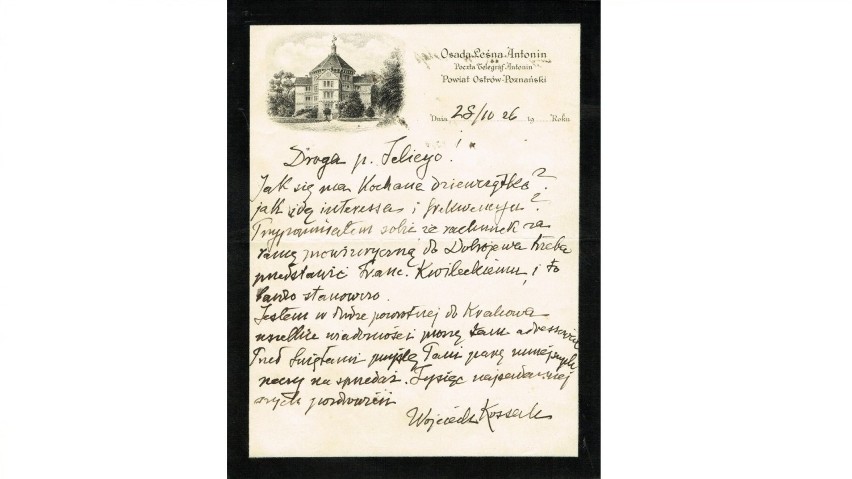 Osada Leśna Antonin
Poczta Telegraf Antonin
Powiat Ostrów-Poznański
Dnia 28/10 26 19 Roku
Droga p. Felicyo!
Jak się ma Kochane dziewczątko?
jak idą interessa i frekwencya?
Przypomniałem sobie że rachunek za
ramę prowizoryczną do Dobrojewa trzeba
przedstawić Franc. Kwileckiemu, i to
bardzo stanowczo.
Jestem w drodze powrotnej do Krakowa
wszelkie wiadomości proszę tam adressować
Przed Świętami przyślę Pani parę mniejszych
rzeczy na sprzedaż. Tysiąc najserdeczniej
szych pozdrowień
Wojciech Kossak